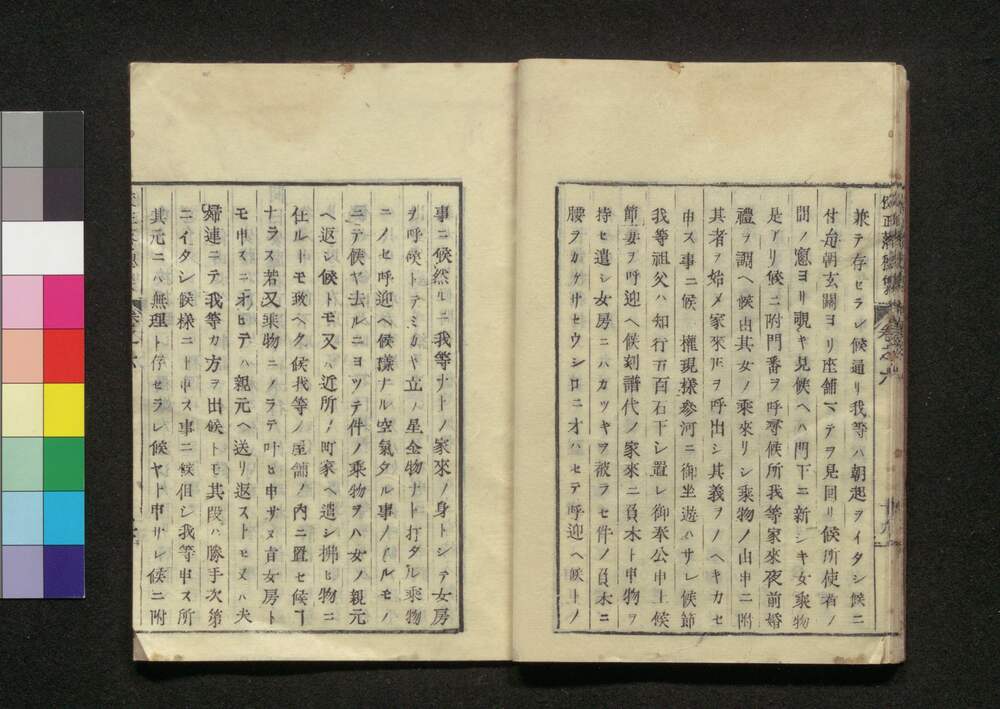 兼テ存セラレ候通リ我等ハ朝起ヲイタシ候ニ
付毎朝玄關ヨリ座舗マテヲ見回リ候所使者ノ
間ノ窓ヨリ覗キ見候ヘハ門下ニ新シキ女乘物
是アリ候ニ附門番ヲ呼尋候所我等家來夜前婚
禮ヲ調ヘ候由其女ノ乘來リシ乘物ノ由申ニ附
其者ヲ始メ家來𪜈ヲ呼出シ其義ヲノヘキカセ
申ス事ニ候 權現様參河ニ御坐遊ハサレ候節
我等祖父ハ知行五百石下シ置レ御奉公申上候
節妻ヲ呼迎ヘ候刻譜代ノ家來ニ負木ト申物ヲ
持セ遣シ女房ニハカツキヲ被ラセ件ノ負木ニ
腰ヲカケサセウシロニオハセテ呼迎ヘ候トノ
事ニ候然ルニ我等ナトノ家來ノ身トシテ女房
ヲ呼候トテミカヤ立ノ星金物ナト打タル乘物
ニノセ呼迎ヘ候様ナル空氣タル事ノアルモノ
ニテ候ヤ去ルニヨツテ件ノ乘物ヲハ女ノ親元
ヘ返シ候トモ又ハ近所ノ町家ヘ遣シ拂ヒ物ニ
仕ルトモ致ヘク候我等ノ屋舗ノ内ニ置セ候ヿ
ナラス若又乘物ニノラテ叶ヒ申サヌ首女房ト
モ申スニオヒテハ親元ヘ送リ返ストモ又ハ夫
婦連ニテ我等カ方ヲ出候トモ其段ハ勝手次第
ニイタシ候様ニト申ス事ニ候但シ我等申ス所
其元ニハ無理ト存セラレ候ヤト申サレ候ニ附